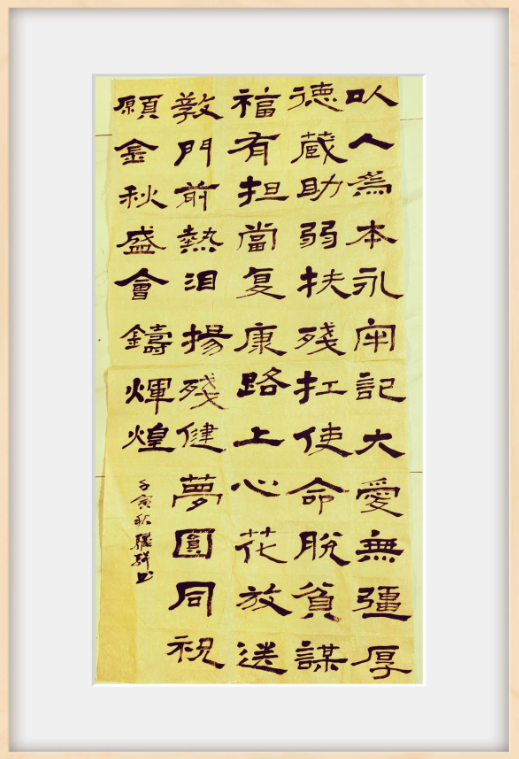 以人為本永牢記大愛無疆厚
德蔵助弱扶殘扛使命脫貧謀
福有担當复康路上心花放送
敎門前熱泪揚殘健夢圓同祝
願金秋盛會鑄輝煌
壬寅秋